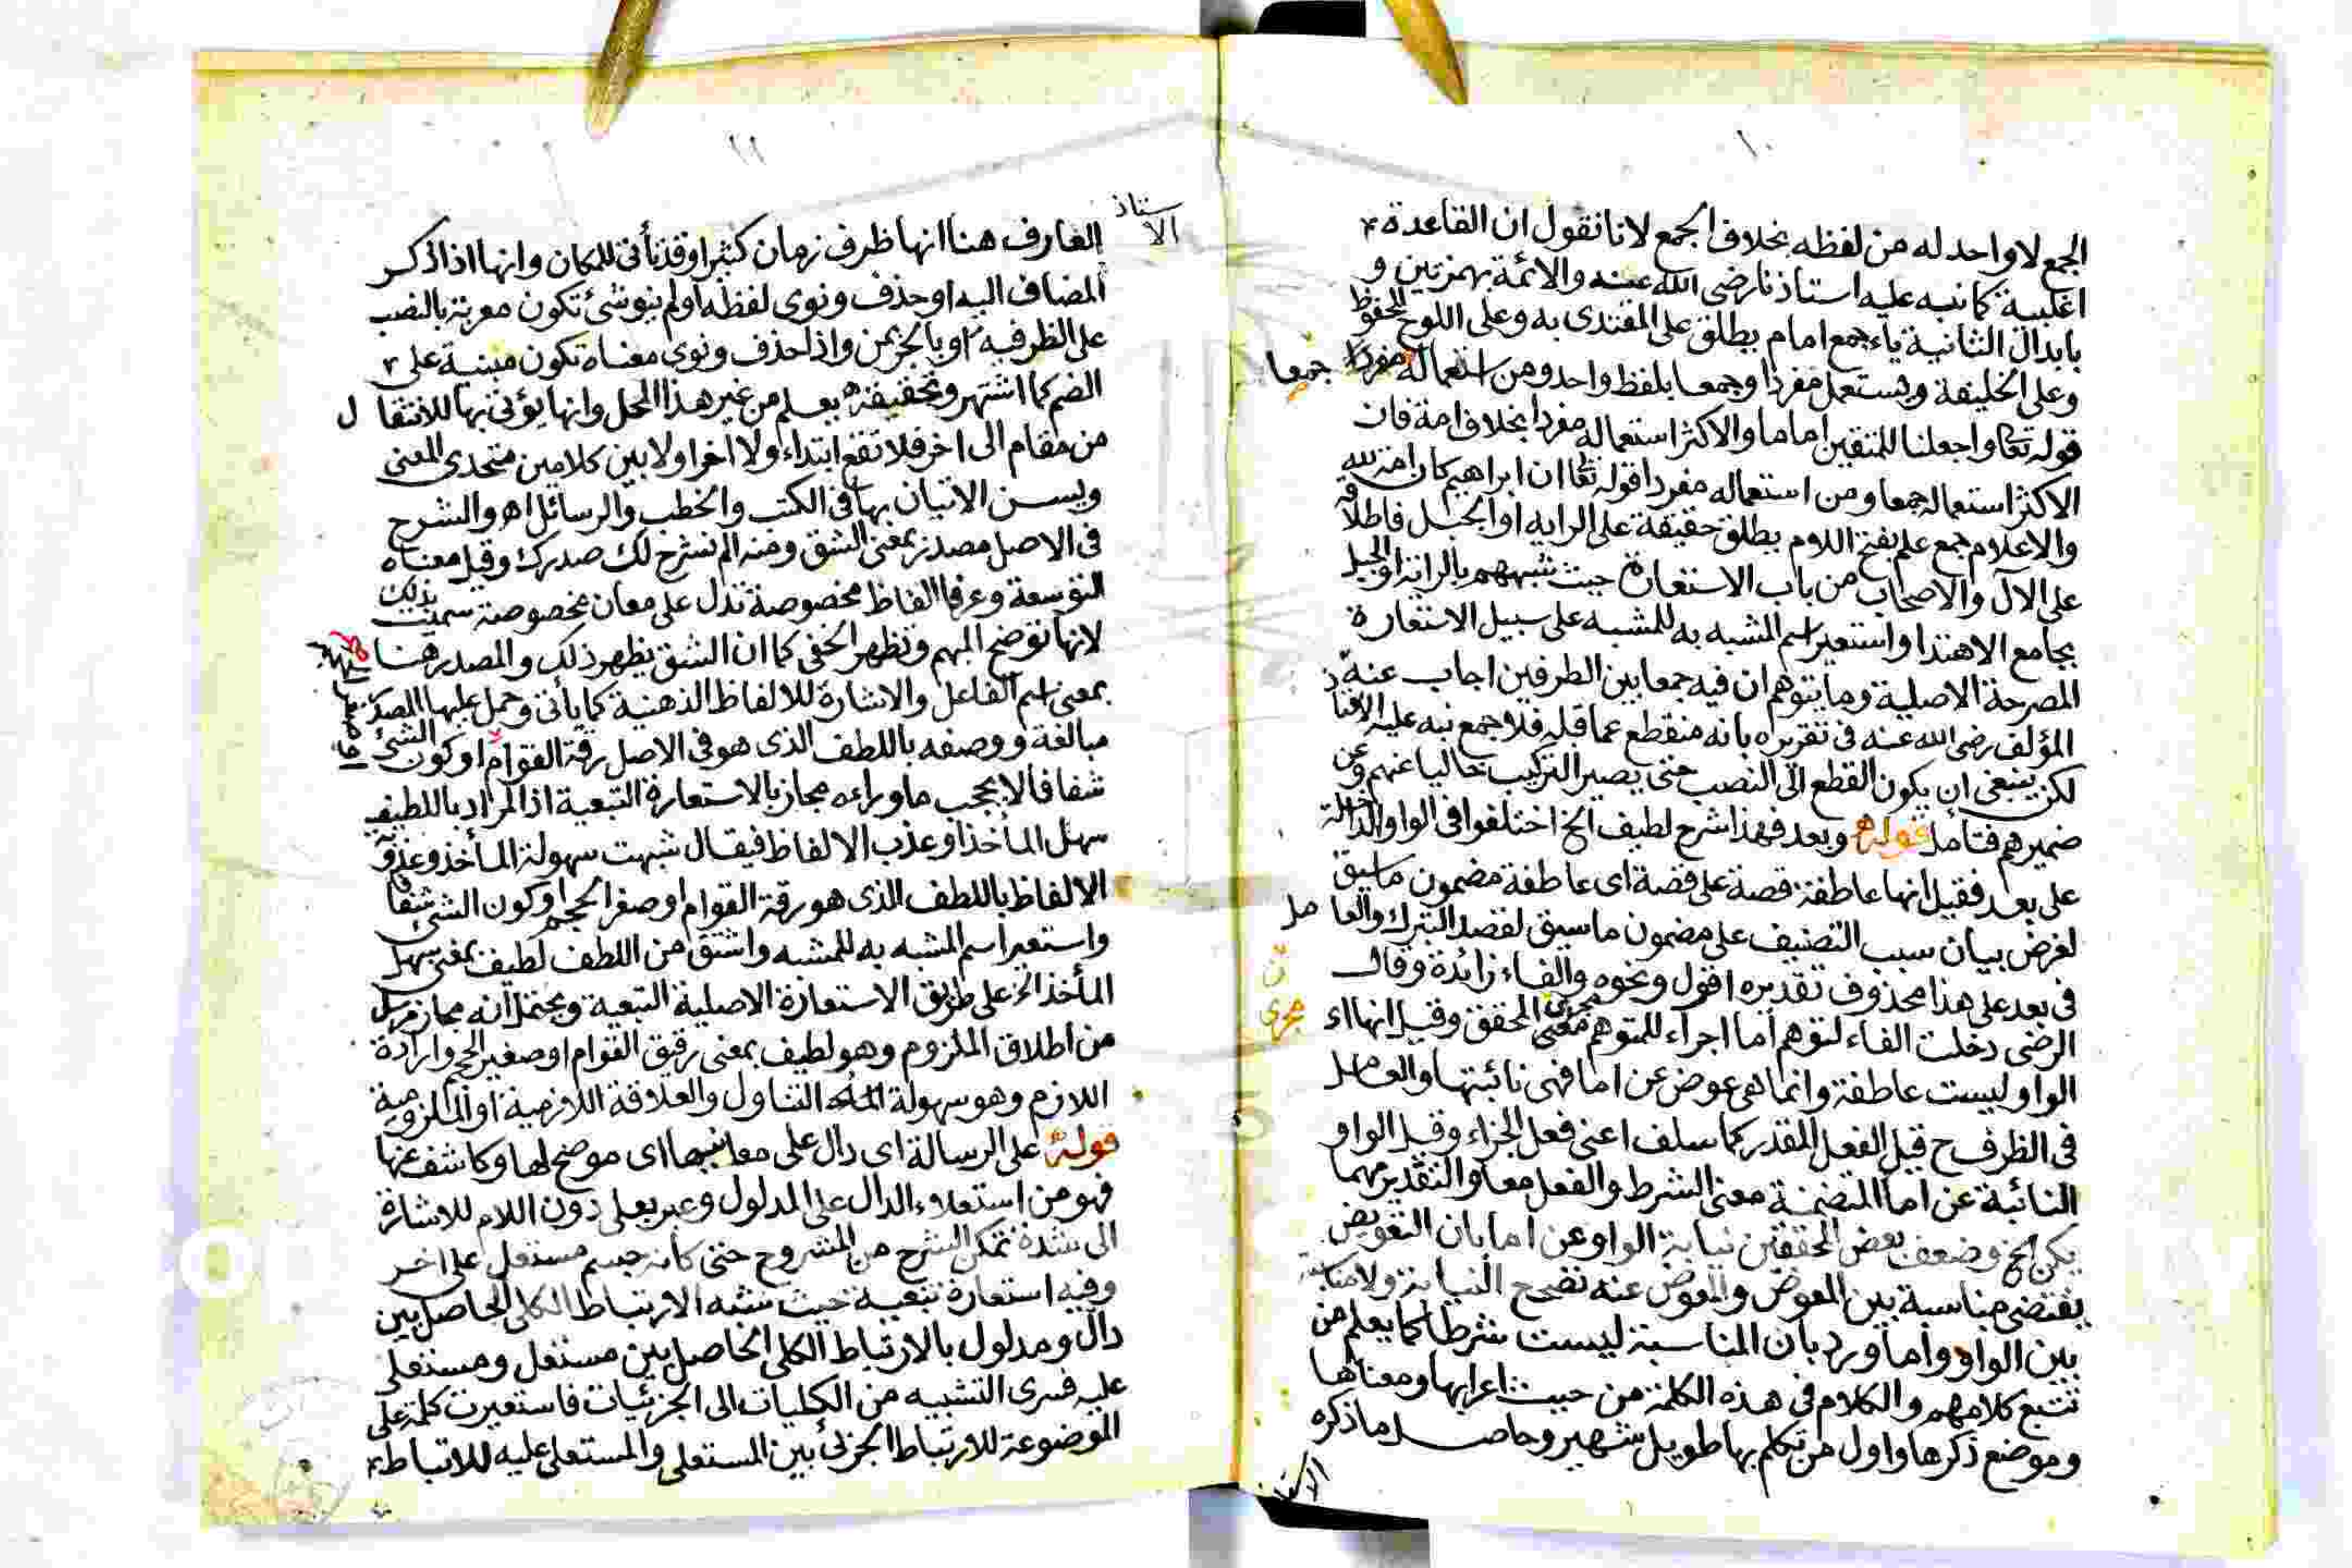 ١٠
الجمع لا واحد له من لفظه بخلاف الجمع لانا نقول ان القاعدة
اغلبية كما نبه عليه استاذنا رضى الله عنه والائمة بهمزتين و
بابدال الثانية ياء جمع امام يطلق على المقتدى به وعلى اللوح المحفوظ
وعلى الخليفة ويستعمل مفردا وجمعا بلفظ واحد ومن استعماله مفردا جمعا
قوله تعا واجعلنا للمتقين اماما والاكثر استعماله مفردا بخلاف امة فان
الاكثر استعماله جمعا ومن استعماله مفردا قوله تعا ان ابراهيم كان امة لله
والاعلام جمع علم بفتح اللام يطلق حقيقة على الراية او الجبل فاطلاقه
على الآل والاصحاب من باب الاستعارة حيث شبههم بالراية او الجبل
بجامع الاهتدا واستعير اسم المشبه به للمشبه على سبيل الاستعارة
المصرحة الاصلية وما يتوهم ان فيه جمعا بين الطرفين اجاب عنه
المؤلف رضى الله عنه فى تقريره بانه منقطع عما قبله فلا جمع نبه عليه
لكن ينبغى ان يكون القطع الى النصب حتى يصير التركيب خاليا عنهم وعن
ضميرهم فتامل قوله وبعد فهذا شرح لطيف الخ اختلفوا فى الواو الداخلة
على بعد فقيل انها عاطفة قصة على قصة اى عاطفة مضمون ما سيق
لغرض بيان سبب التصنيف على مضمون ما سيق لقصد التبرك والعامل
فى بعد على هذا محذوف تقديره اقول ونحوه والفاء زائدة وقال
الرضى دخلت الفاء لتوهم اما اجراء للمتوهم مجرى المحقق وقيل انها اء مجرى
الواو ليست عاطفة وانما هى عوض عن اما فهى نائبتها والعامل
فى الظرف ح قيل الفعل المقدر كما سلف اعنى فعل الجزاء وقيل الواو
النائبة عن اما المتضمنة معنى الشرط والفعل معا والتقدير مهما
يكن الخ وضعف بعض المحققين نيابة الواو عن اما بان التعويض
يقتضى مناسبة بين المعوض والمعوض عنه تصحح النيابة ولا مناسبة
بين الواو واما ورد بان المناسبة ليست شرطا كما يعلم من
تتبع كلامهم والكلام فى هذه الكلمة من حيث اعرابها ومعناها
وموضع ذكرها واول من تكلم بها طويل شهير وحاصل ما ذكره
الاستاذ
١١
الاستاذ
العارف هنا انها ظرف زمان كثيرا وقد تأتى للمكان وانها اذا ذكر
المضاف اليه او حذف ونوى لفظه او لم ينو شئ تكون معربة بالنصب
على الظرفية او بالجر بمن واذا حذف ونوى معناه تكون مبنية على
الضم كما اشتهر وتحقيقه يعلم من غير هذا المحل وانها يؤتى بها للانتقال
من مقام الى اخر فلا تقع ابتداء ولا اخرا ولا بين كلامين متحدى المعنى
ويسن الاتيان بها فى الكتب والخطب والرسائل اه والشرح
فى الاصل مصدر بمعنى الشق ومنه الم نشرح لك صدرك وقيل معناه
التوسعة وعرفا الفاظ مخصوصة تدل على معان مخصوصة سميت بذلك
لانها توضح المبهم وتظهر الخفى كما ان الشق يظهر ذلك والمصدر هنا
بمعنى اسم الفاعل والاشارة للالفاظ الذهنية كما يأتى وحمل عليها المصدر
مبالغة ووصفه باللطف الذى هو فى الاصل رقة القوام او كون الشئ
شفافا لا يحجب ما وراءه مجاز بالاستعارة التبعية اذ المراد باللطيف
سهل المأخذ او عذب الالفاظ فيقال شبهت سهولة المأخذ وعذوبة
الالفاظ باللطف الذى هو رقة القوام او صغر الحجم او كون الشئ شفافا
واستعير اسم المشبه به للمشبه واشتق من اللطف لطيف بمعنى سهل
المأخذ الخ على طريق الاستعارة الاصلية التبعية ويحتمل انه مجاز مرسل
من اطلاق الملزوم وهو لطيف بمعنى رقيق القوام او صغير الحجم وارادة
اللازم وهو سهولة التناول والعلاقة اللازمية او الملزومية
قوله على الرسالة اى دال على معانيها اى موضح لها وكاشف عنها
فهو من استعلاء الدال على المدلول وعبر بعلى دون اللام للاشارة
الى شدة تمكن الشرح من المشروح حتى كانه جسم مستعل على اخر
وفيه استعارة تبعية حيث شبه الارتباط الكلى الحاصل بين
دال ومدلول بالارتباط الكلى الحاصل بين مستعل ومستعلى
عليه فسرى التشبيه من الكليات الى الجزئيات فاستعيرت كلمة على
الموضوعة للارتباط الجزئى بين المستعلى والمستعلى عليه للارتباط